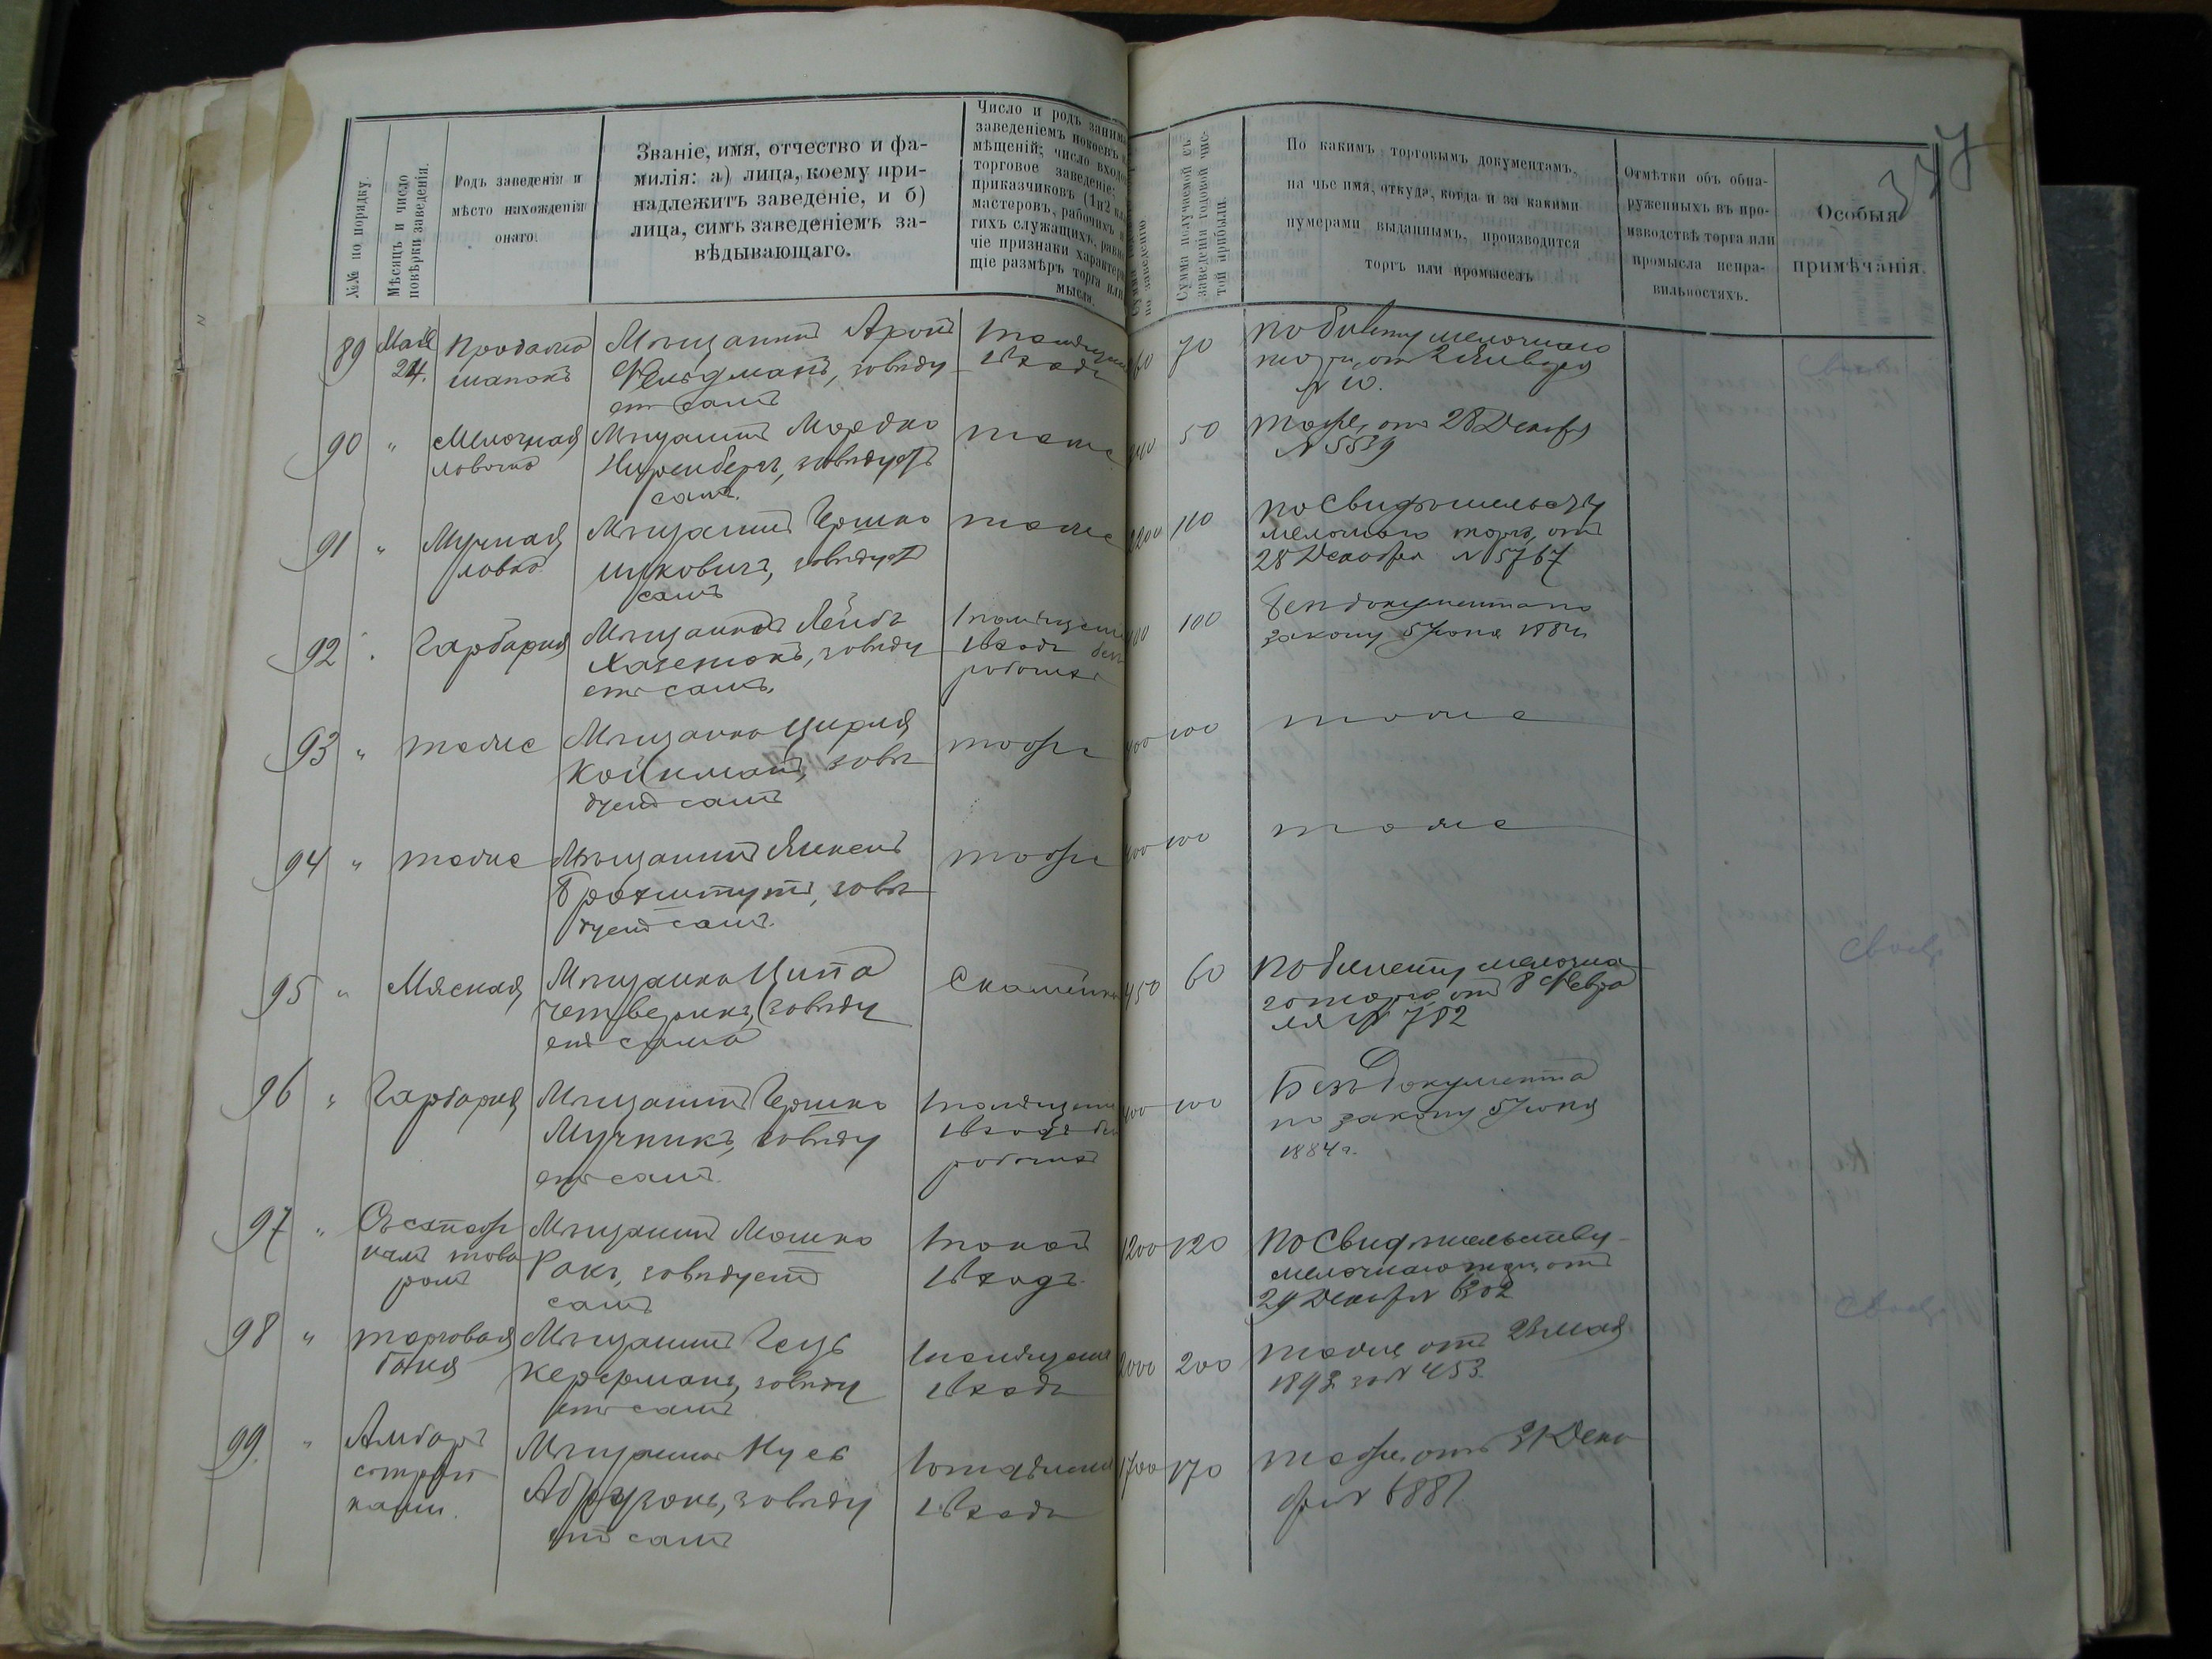 №№ по порядку.
Мѣсяцъ и число
повѣрки заведенія.
Родъ заведенія и
мѣсто нахожденія
онаго.
Званіе, имя, отчество и фа-
милія: а) лица, коему при-
надлежитъ заведеніе, и б)
лица, симъ заведеніемъ за-
вѣдывающаго.
Число и родъ заним
заведеніемъ покоевъ
мѣщеній; число входо
торговое заведеніе;
приказчиковъ (1 и 2
мастеровъ, рабочихъ
гихъ служащихъ,
чіе признаки характери
щіе размѣръ торга или
мысла.
по заведенію
Сумма получаемой съ
заведенія годовой чис-
той прибыли.
По какимъ торговымъ документамъ,
на чье имя, откуда, когда и за какими
нумерами выданнымъ, производится
торгъ или промыселъ
Отмѣтки объ обна-
руженныхъ въ про-
изводствѣ торга или
промысла непра-
вильностяхъ.
Особыя
примѣчанія.
89
Мая
24.
Продажа
шапокъ
Мѣщанинъ Аронъ
Фельдманъ, завѣду
етъ самъ
1 помѣщен
1 входъ
70
по билету мелочного
торга, от 2 Января
№ 10.
90 "
Мелочная
лавочка
Мѣщанинъ Мордко
Ниренбергъ, завѣдуетъ
самъ.
тоже
50
Тоже, отъ 28 Декабря
№ 5539
91 "
Мучная
лавка
Мѣщанинъ Гершко
Ицковичъ, завѣдуетъ
самъ
тоже
2200
110
по Свидѣтельству
мелочного торга, отъ
28 Декабря № 5767
92 "
Гарбарня
Мѣщанинъ Лейбъ
завѣду
етъ самъ.
1 помѣщен
1 входъ без
рабочих
100
Без документа по
закону 5 Іюня 1884 г.
93 "
тоже
Мѣщанка Цирля
Койфманъ, завѣ
дуетъ самъ
тоже
400
100
тоже
94 "
тоже
Мѣщанинъ
завѣ
дуетъ самъ.
тоже
400
100
тоже
95 "
Мясная
Мѣщанка Ципа
Четверикъ, завѣду
етъ сама
Скамейка
450
60
По билету мелочна
го торга, отъ 8 Февра
ля № 782
96 "
Гарбарня
Мѣщанинъ Гершко
Мучникъ, завѣду
етъ самъ.
1 помѣщен
1 входъ без
рабочих
400
100
Безъ документа
по закону 5 Іюня
1884 г.
97 "
Съестны
нымъ това
ромъ
Мѣщанинъ Мошко
Ракъ, завѣдуетъ
самъ
1 покой
1 входъ
1200
120
По Свидѣтельству
мелочного торга, отъ
29 Декабря № 6302
98 "
торговая
баня
Мѣщанинъ Гецъ
Керцманъ, завѣду
етъ самъ
1 помѣщен
1 входъ
2000
200
Тоже, отъ 23 мая
1892 за № 453
99. "
Амбаръ
с тряп
ками.
Мѣщанинъ
завѣду
етъ самъ
1 помѣщен
1 входъ
1700
170
Тоже, отъ 31 Дека
бря № 6881